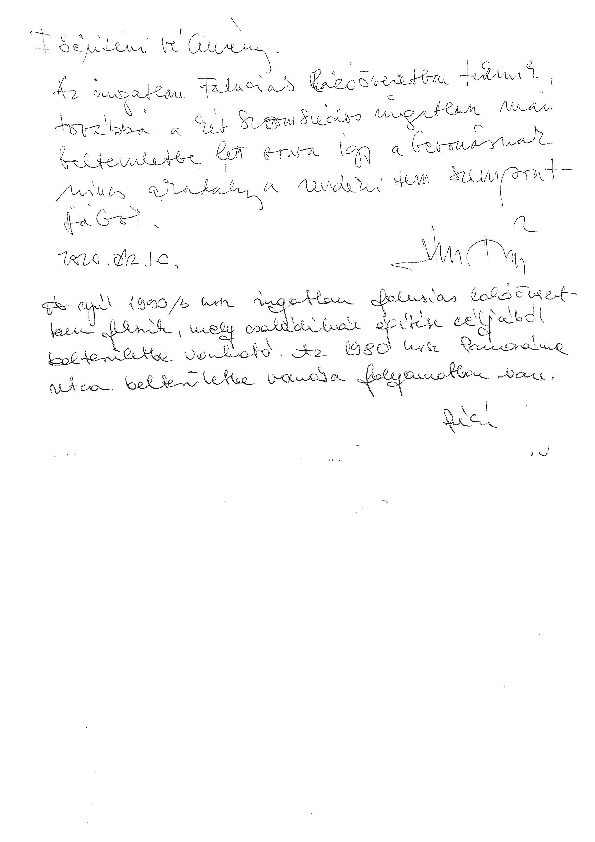 Főépítészi vélemény.
Az ingatlan Falusias lakóövezetben fekszik,
továbbá a két szomszédos ingatlan már
belterületbe lett vonva így a bevonásnak
nincs akadálya rendezési szempont-
ból.
2020.02.10.
1990/3 hrsz ingatlan falusias lakóövezet-
ben fekszik, mely családi ház építése céljából
belterületbe vonható. Az 1980 hrsz Panoráma
utca belterületbe vonása folyamatban van.